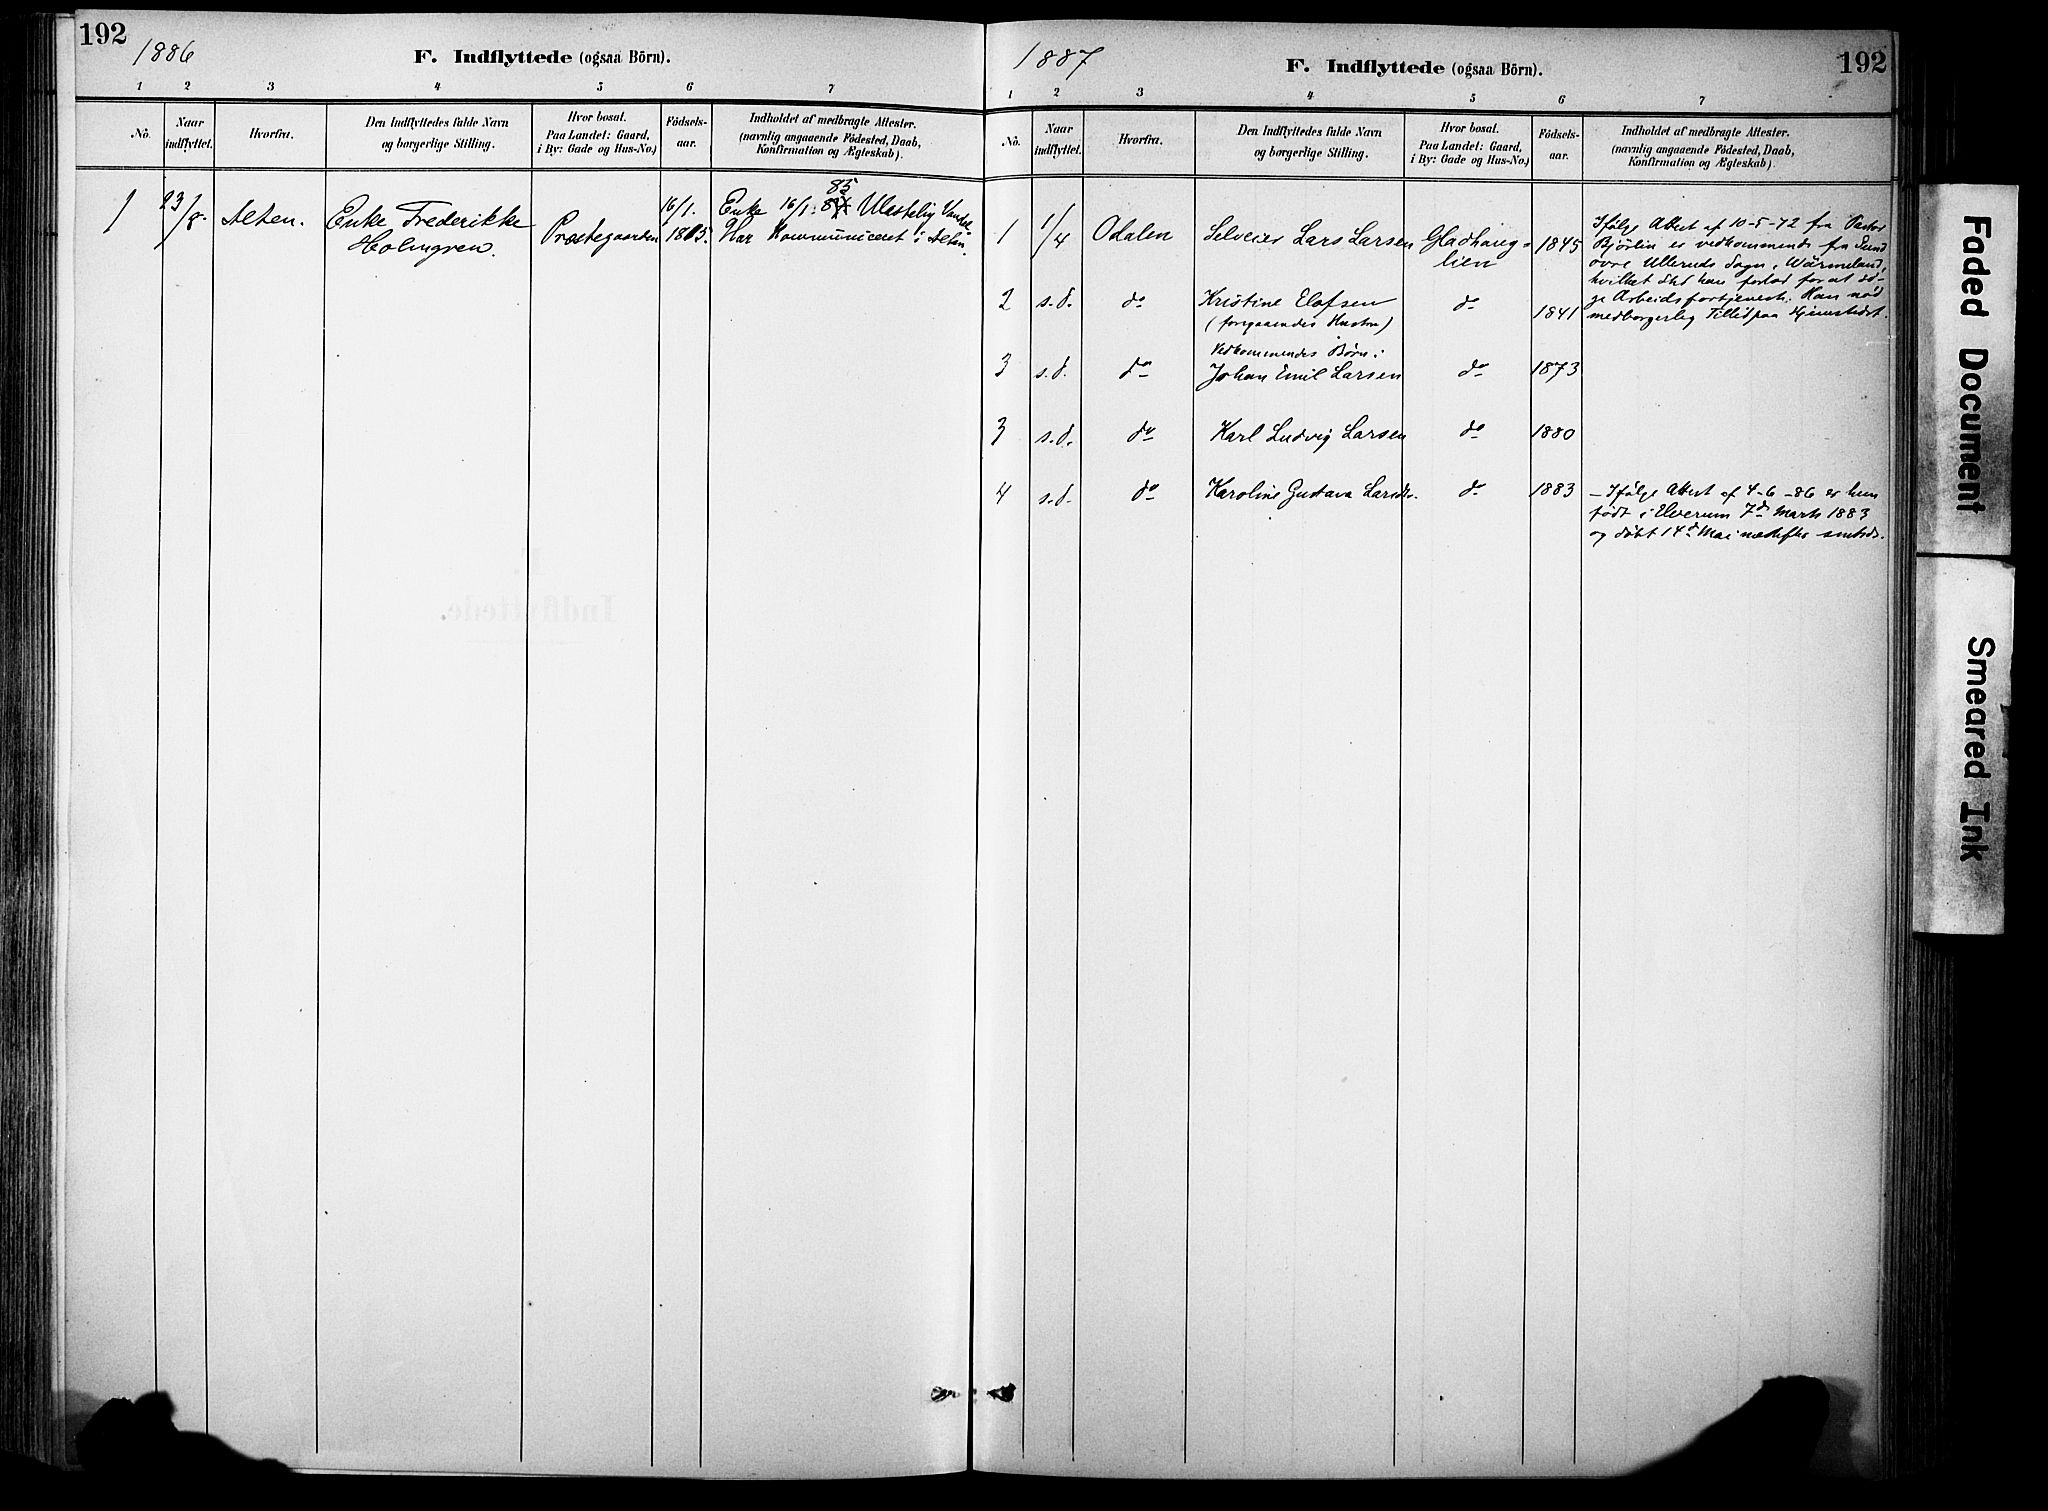 192
1886
F. Indflyttede (ogsaa Börn).
1 2 3 4 5 6 7
No. Naar indflyttet. Hvorfra. Den Indflyttedes fulde Navn og borgerlige Stilling. Hvor bosat. Paa Landet: Gaard, i By: Gade og Hus-No.) Födsels-aar. Indholdet af medbragte Attester. (navnlig angaaende Födested, Daab, Konfirmation og Ægteskab).
1 23/8. Alten. Enke Frederikke Holmgren. Præstegaarden 16/1. 1805. Enke 16/1. 85 Ulastelig Vandel. Har Kommuniceret i Alten.
1887
F. Indflyttede (ogsaa Börn).
192
1 2 3 4 5 6 7
No. Naar indflyttet. Hvorfra. Den Indflyttedes fulde Navn og borgerlige Stilling. Hvor bosat. Paa Landet: Gaard, i By: Gade og Hus-No.) Födsels-aar. Indholdet af medbragte Attester. (navnlig angaaende Födested, Daab, Konfirmation og Ægteskab).
1 1/4 Odalen Selveier Lars Larsen Gladhaug-lien 1845 Ifølge Attest af 10-5-72 fra Pastor
Bjørlin er vedkommende fra Sund
øvre Ulleruds Sogn, Wärmeland,
hvilket Sted han forlod for at sø-
ge Arbeidsfortjeneste. Han nød
medborgerlig Tillid paa Hjemstedet.
2 s.d. do Kristine Elofsen do 1841
(foregaaendes Hustru)
Vedkommendes Børn:
3 s.d. do Johan Emil Larsen do 1873
3 s.d. do Karl Ludvig Larsen do 1880
4 s.d. do Karoline Gustava Larsdtr. do 1883 – Ifølge Attest af 4-6-86 er hun
født i Elverum 7d Marts 1883
og døbt 14d Mai næstefter sammesteds.
Faded Document
Smeared Ink